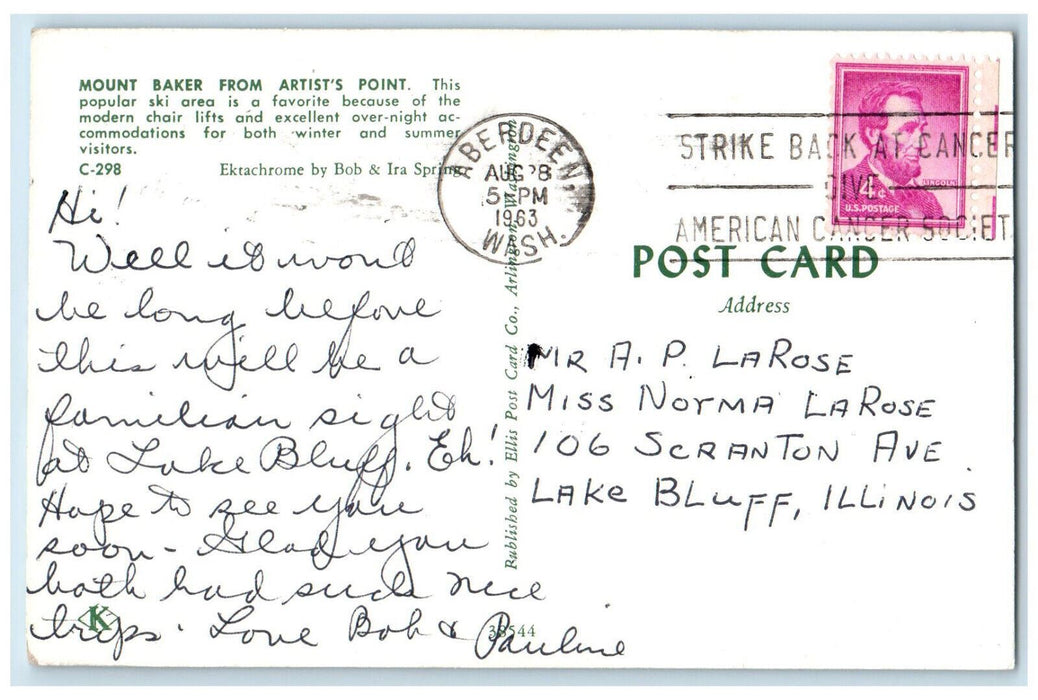 MOUNT BAKER FROM ARTIST'S POINT. This
popular ski area is a favorite because of the
modern chair lifts and excellent over-night ac-
commodations for both winter and summer
visitors.
C-298 Ektachrome by Bob & Ira Spring
ABERDEEN,
AUG 28
5 PM
1963
WASH.
STRIKE BACK AT CANCER
GIVE
AMERICAN CANCER SOCIET
LINCOLN
4c
U.S. POSTAGE
Hi!
Well it won't
be long before
this will be a
familiar sight
at Lake Bluff. Eh!
Hope to see you
soon - Glad you
both had such nice
trips. Love Bob & Pauline
K
Published by Ellis Post Card Co., Arlington, Washington
POST CARD
Address
MR A. P. LAROSE
MISS NORMA LAROSE
106 SCRANTON AVE.
LAKE BLUFF, ILLINOIS
38544